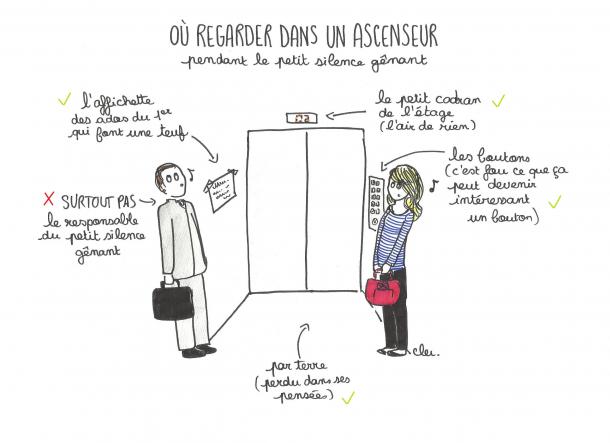 OÙ REGARDER DANS UN ASCENSEUR
pendant le petit silence gênant
l'affichette
des ados du 1er
qui font une teuf
le petit cadran
de l'étage
(l'air de rien)
02
les boutons
(c'est fou ce que ça
peut devenir
intéressant
un bouton)
SURTOUT PAS
le responsable
du petit silence
gênant
par terre
(perdu dans ses
pensées)
clei.